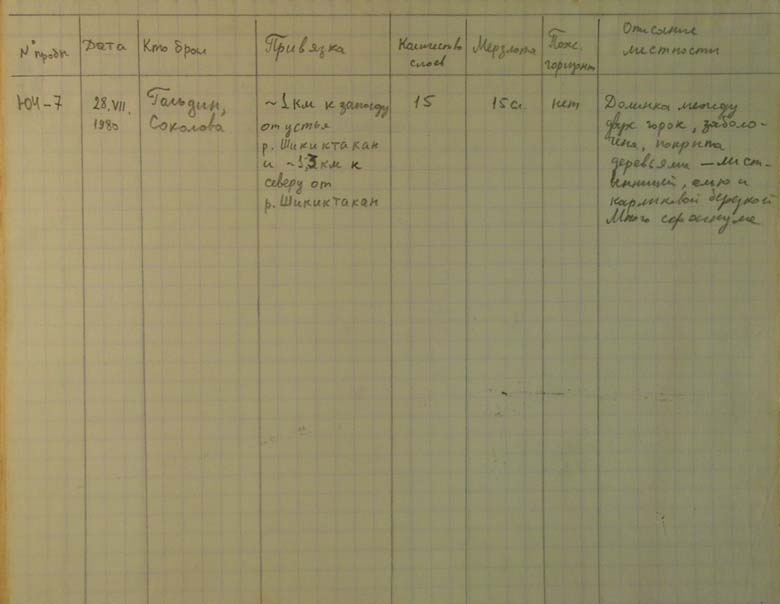 N° пробы
Дата
Кто брал
Привязка
Количество
слоев
Мерзлота
Пож.
горизонт
Описание
местности
ЮЧ-7
28.VII.
1980
Гальдин,
Соколова
~1 км к западу
от устья
р. Шикиктакан
и ~1,3 км к
северу от
р. Шикиктакан
15
15 сл.
нет
Долинка между
двух горок, заболо-
чена, покрыта
деревьями — лист-
венницей, елью и
карликовой березкой
Много сфагнума